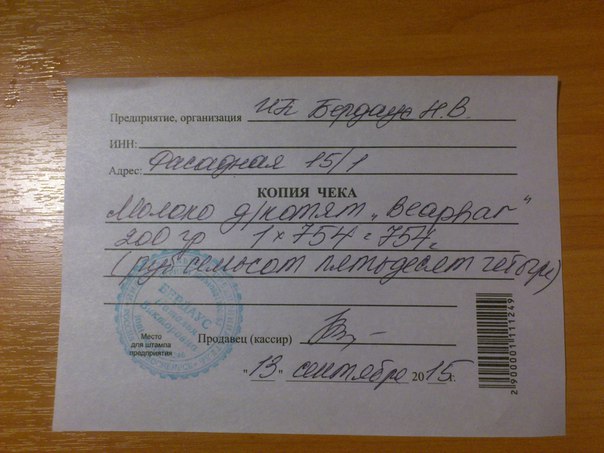 Предприятие, организация ИП Бердаус Н.В.
ИНН:
Адрес: Фасадная 15/1
КОПИЯ ЧЕКА
Молоко д/котят „Beaphar“
200 гр 1 х 754 = 754=
(руб семьсот пятьдесят четыре)
БЕРДАУС
Место
для штампа
предприятия
Продавец (кассир)
"13" сентября 2015г.
2 900001 111249